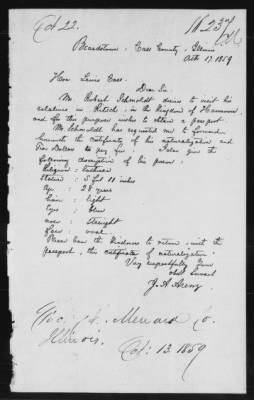 Oct 22.
Beardstown. Cass County. Illinois
Oct. 17. 1859
Hon. Lewis Cass.
Dear Sir.
Mr. Robert Schmoldt desires to visit his
relations in in the Kingdom of Hannover
and for this purpose wishes to obtain a passport.
Mr. Schmoldt has requested me to forward
herewith the certificate of his naturalization and
Two Dollars to pay for. I also give the
following description of his person:
Religion: Lutheran
Stature: 5 feet 11 inches
Age: 28 years
hair: light
Eyes: blue
nose: straight
Face: oval.
Please have the kindness to return, with the
passport, the certificate of naturalization.
Very respectfully Your
obdt Servant
J. A. Arenz
Menard Co.
Illinois.
Oct: 13. 1859